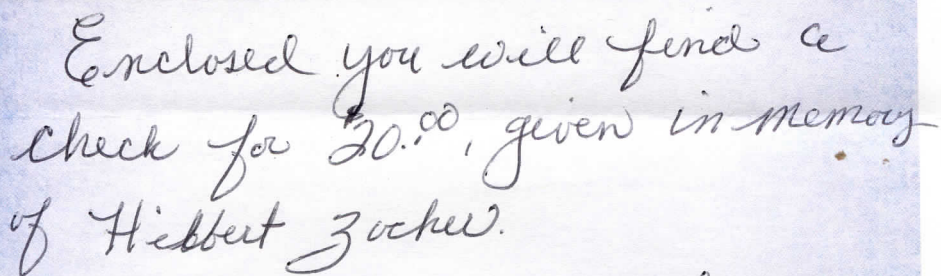 Enclosed you will find a
check for $20.00, given in memory
of Hibbert Zocher.